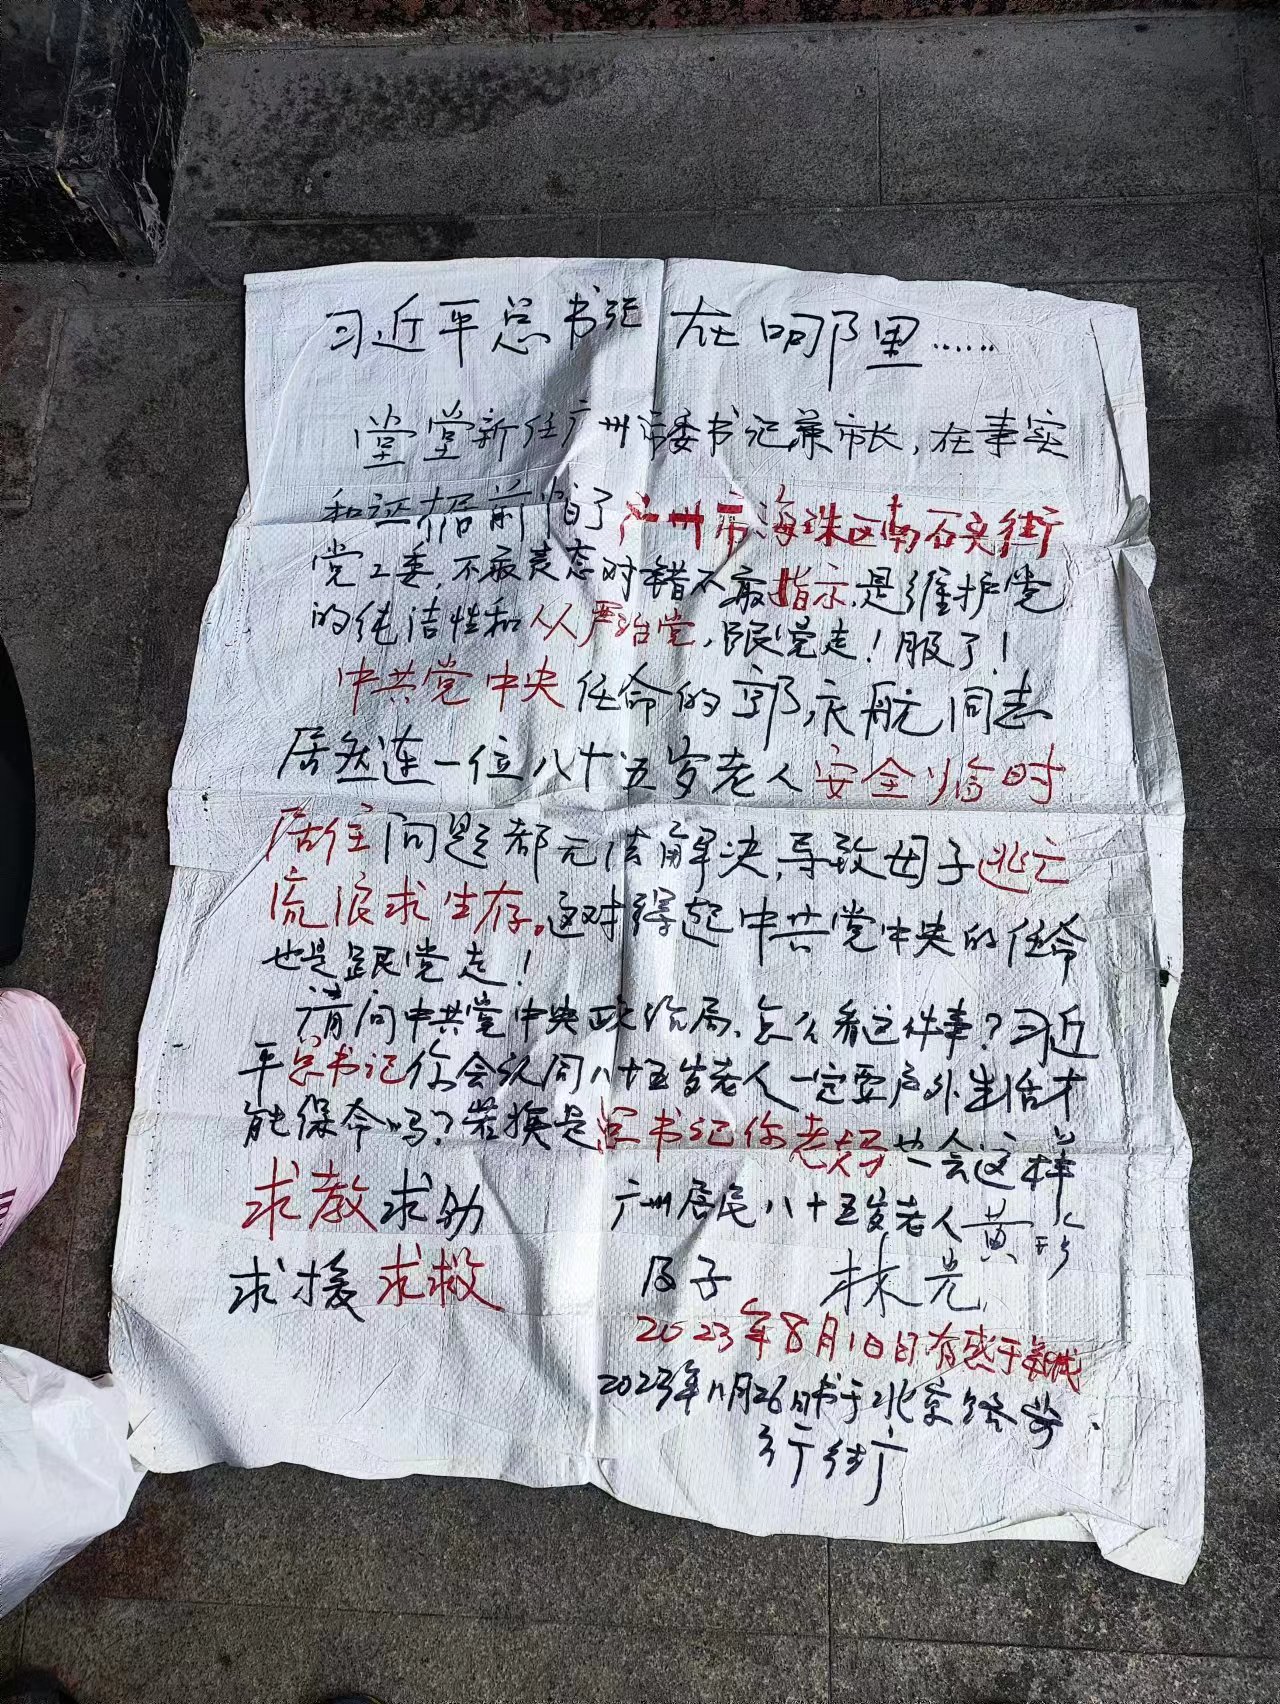 习近平总书记在哪里……
堂堂新任广州市委书记兼市长，在事实
和证据前怕了广州市海珠区南石头街
党工委，不敢表态对错不敢指示，是维护党
的纯洁性和从严治党，跟党走！服了！
中共党中央任命的郭永航同志
居然连一位八十五岁老人安全临时
居住问题都无法解决，导致母子逃亡
流浪求生存。这对得起中共党中央的任命
也是跟党走！
请问中共党中央政治局、怎么看这件事？习近
平总书记你会认同八十五岁老人一定要户外生活才
能保命吗？若换是总书记你老妈也会这样
求教求助 广州居民八十五岁老人黄
求援求救 及子 林光
2023年8月1日日有感于
2023年11月26日书于北京